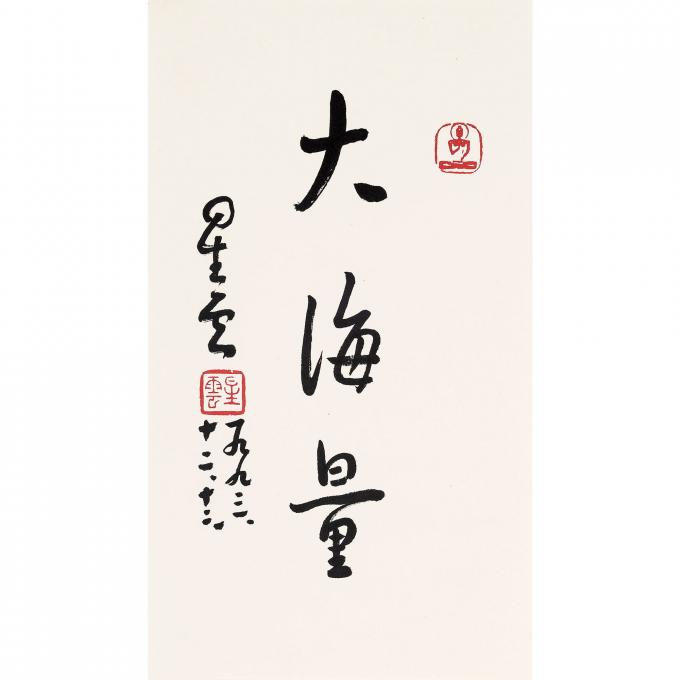 大海量
星云
星雲
一九九三、
十二、十二、